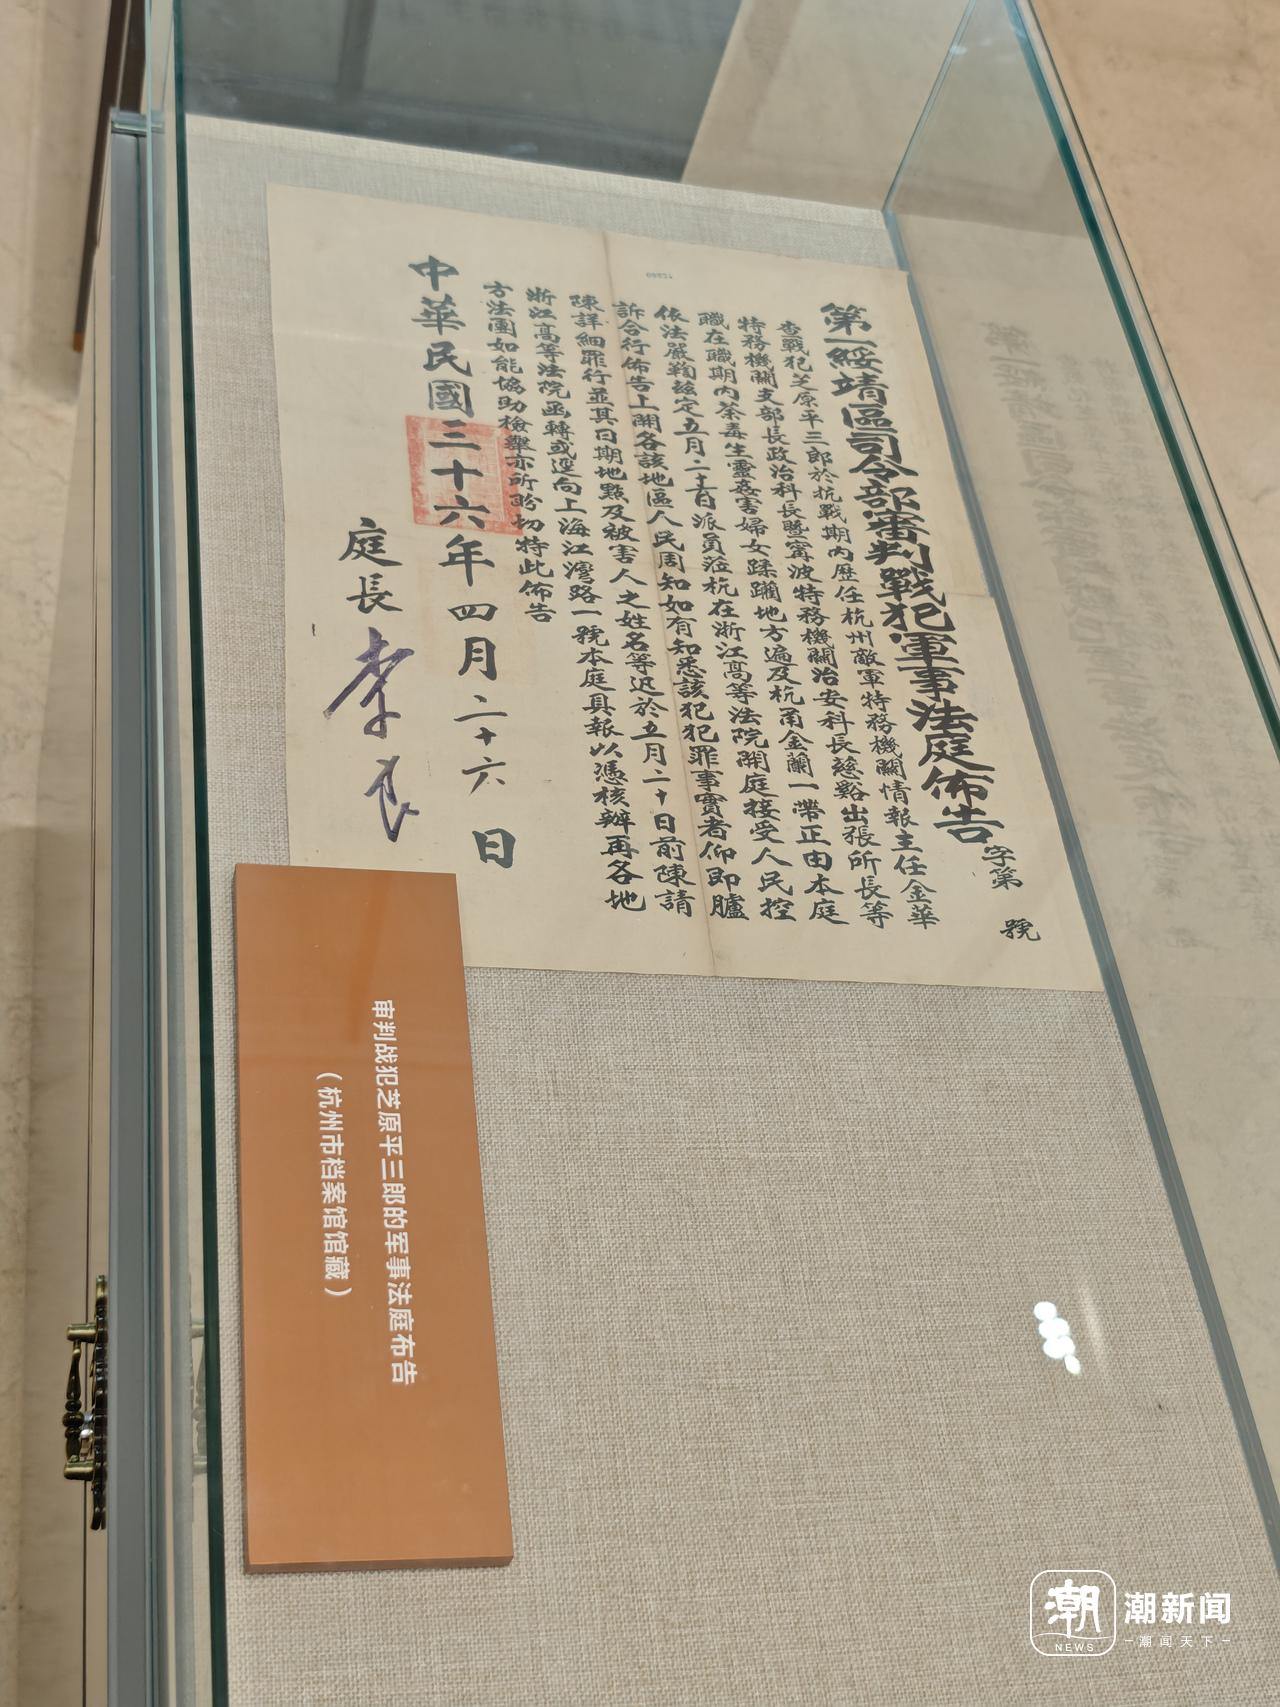 第一綏靖區司令部審判戰犯軍事法庭佈告
字第 號
查戰犯芝原平三郎於抗戰期內歷任杭州敵軍特務機關情報主任金華
特務機關支部長政治科長暨甯波特務機關治安科長慈谿出張所長等
職在職期內荼毒生靈姦害婦女蹂躪地方遍及杭甬金蘭一帶正由本庭
依法嚴鞫玆定五月二十日派員蒞杭在浙江高等法院開庭接受人民控
訴合行佈告上開各該地區人民周知如有知悉該犯犯罪事實者仰即臚
陳詳細罪行並其日期地點及被害人之姓名等迅於五月二十日前陳請
浙江高等法院函轉或逕向上海江灣路一號本庭具報以憑核辦再各地
方法團如能協助檢舉亦所盼切特此佈告
中華民國三十六年四月二十六日
庭長 李良
审判战犯芝原平三郎的军事法庭布告
（杭州市档案馆馆藏）
潮
NEWS
潮新闻
潮闻天下